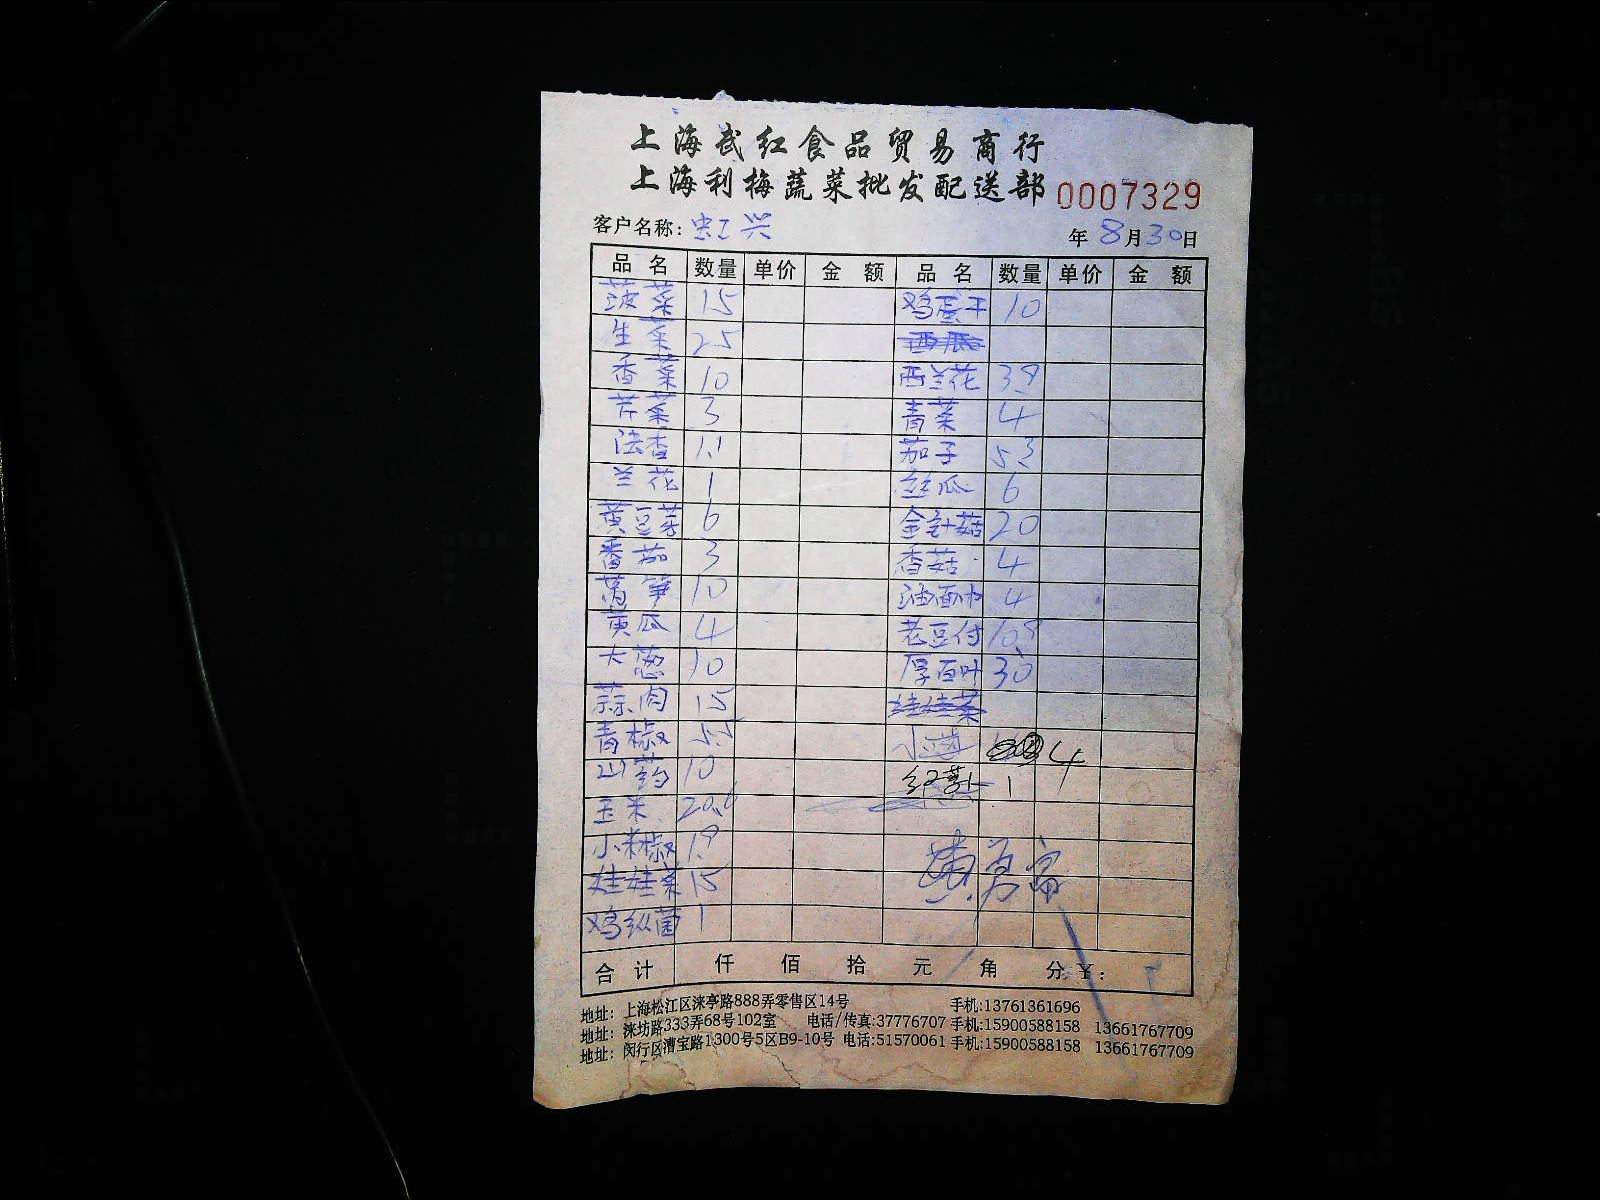 上海武红食品贸易商行
上海利梅蔬菜批发配送部 0007329
客户名称: 虹兴 年 8月30日
品名 数量 单价 金额 品名 数量 单价 金额
菠菜 15 鸡蛋干 10
生菜 25
香菜 10 西兰花 3.9
芹菜 3 青菜 4
法香 1.1 茄子 5.3
兰花 1 丝瓜 6
黄豆芽 6 金针菇 20
番茄 3 香菇 4
莴笋 10 油面巾 4
黄瓜 4 老豆付 10.8
大葱 10 厚百叶 30
蒜肉 15
青椒 5.5 4
山药 10 1
玉米 20.6
小米椒 1.9
娃娃菜 15
鸡纵菌 1
合计 仟 佰 拾 元 角 分 ¥:
地址: 上海松江区涞亭路888弄零售区14号 手机:13761361696
地址: 涞坊路333弄68号102室 电话/传真:37776707 手机:15900588158 13661767709
地址: 闵行区漕宝路1300号5区B9-10号 电话:51570061 手机:15900588158 13661767709